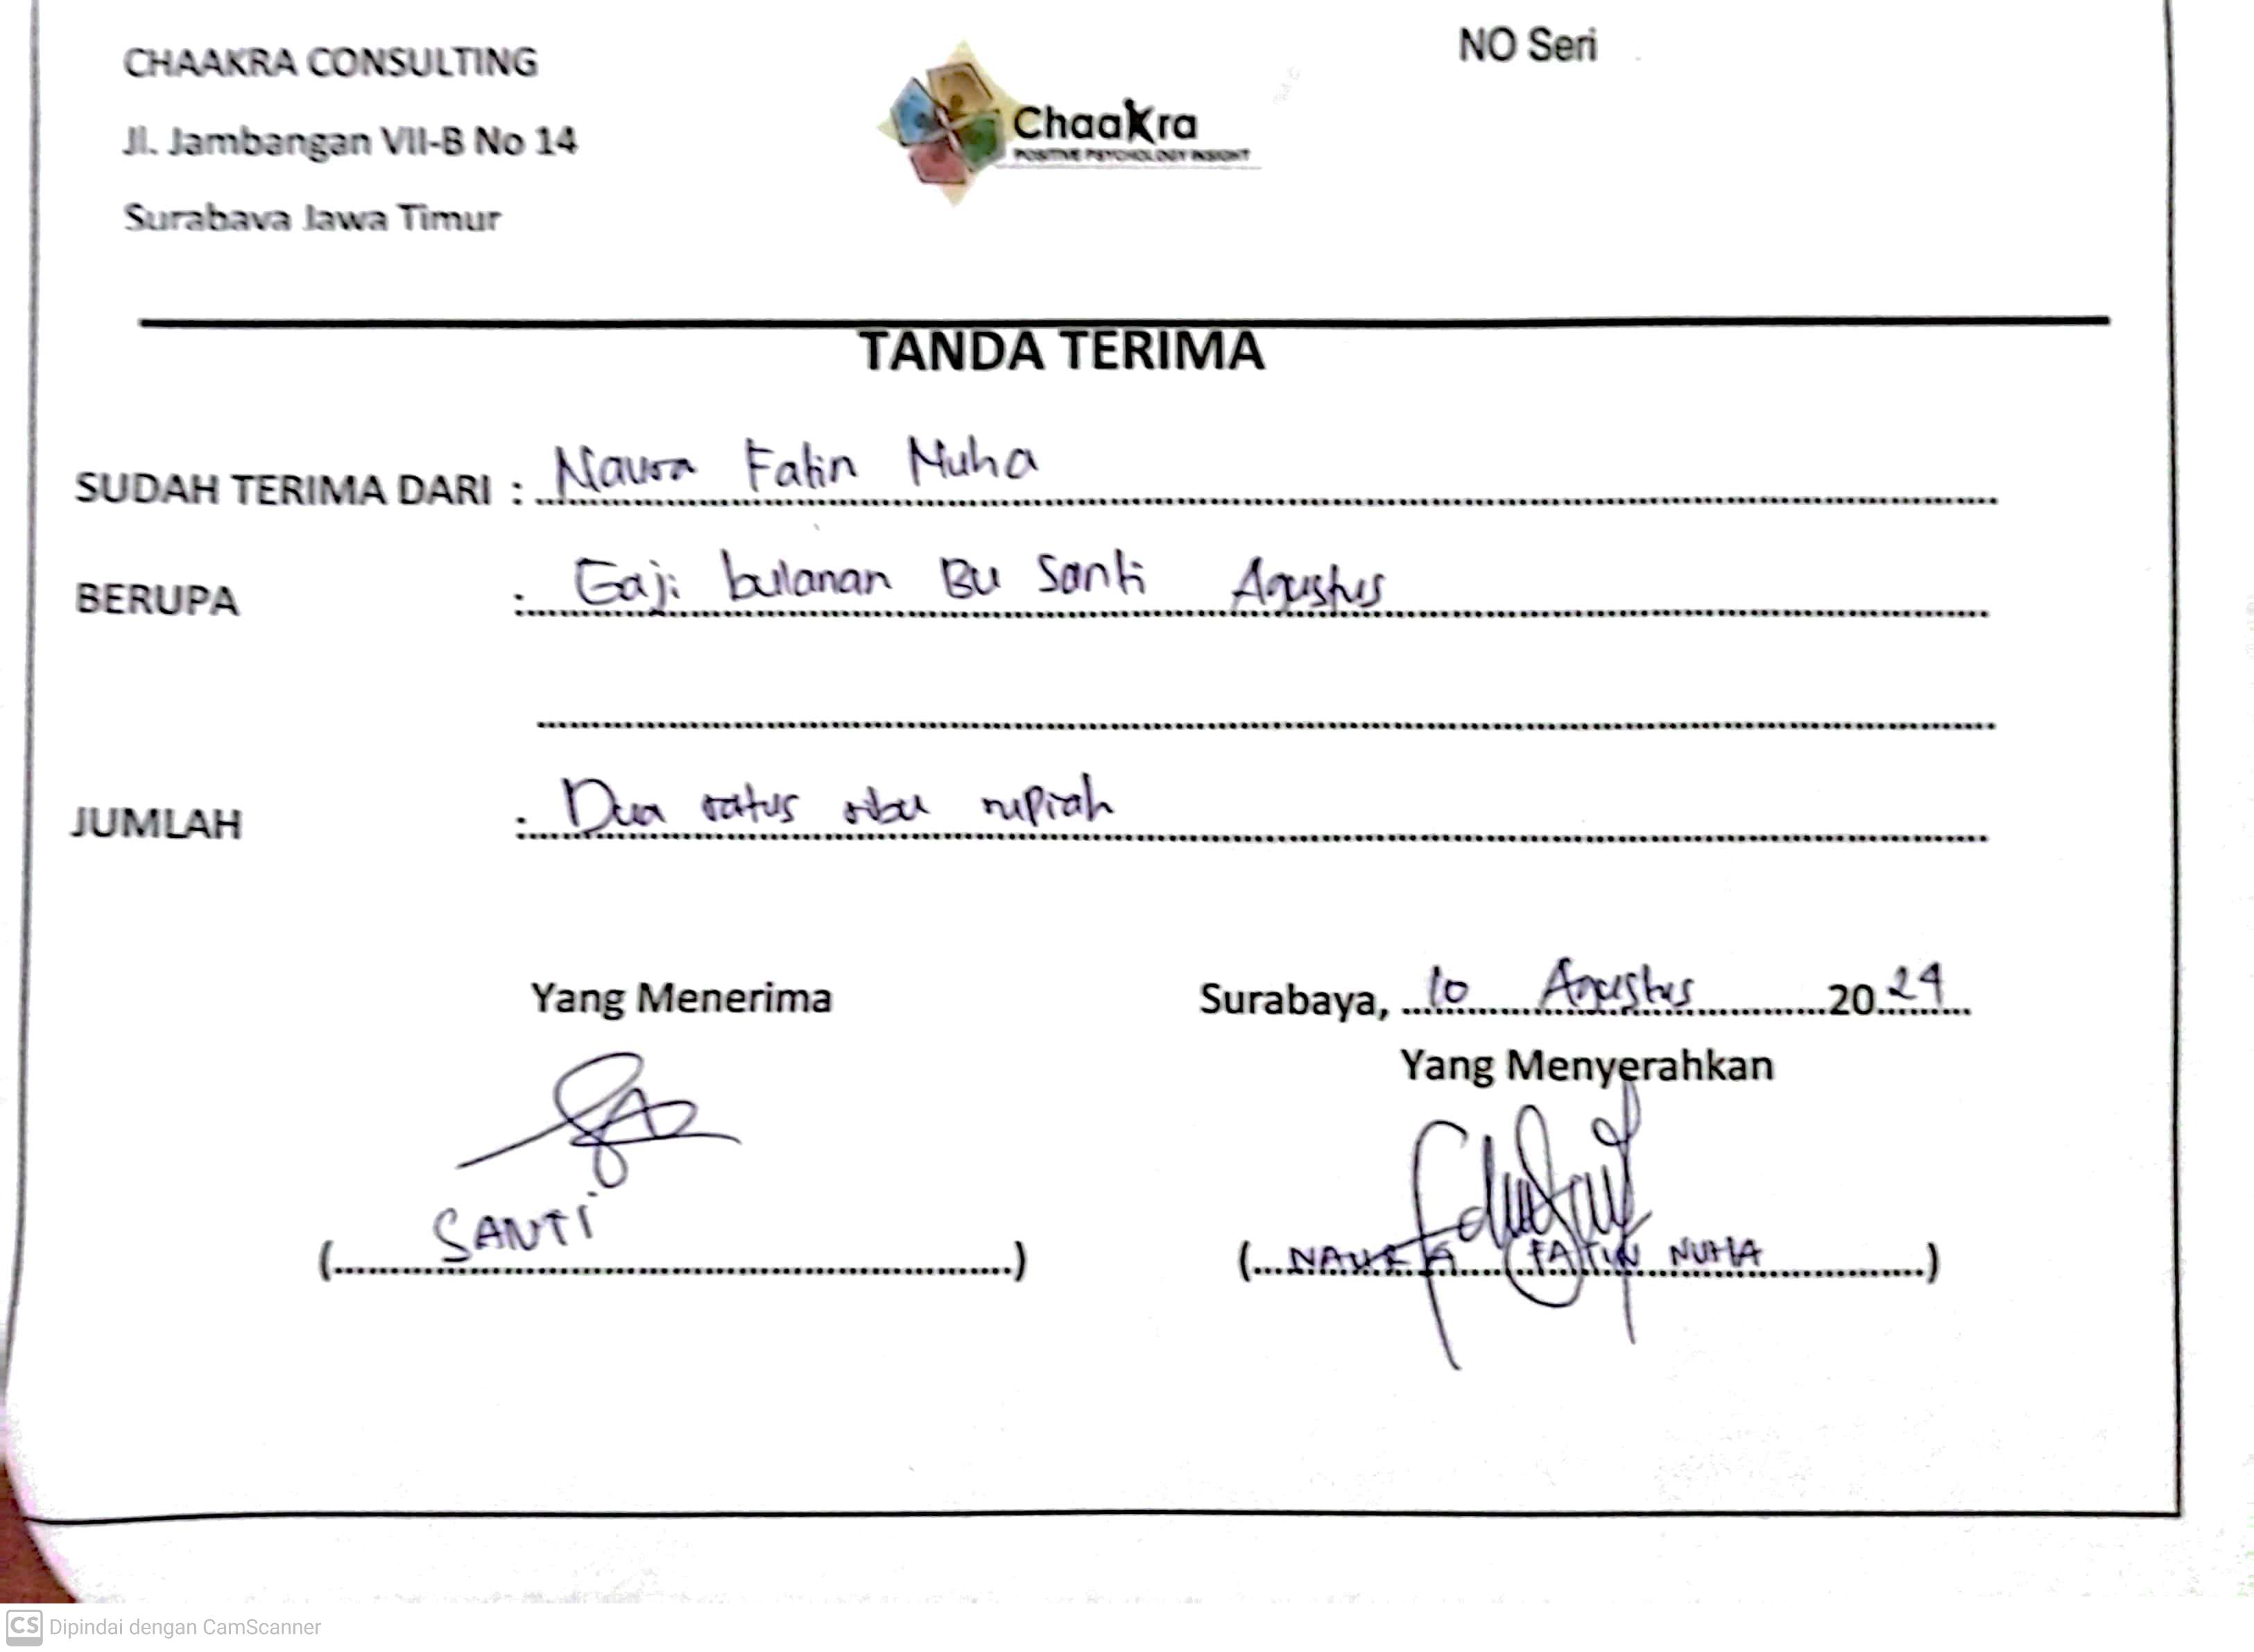 CHAAKRA CONSULTING
NO Seri
Jl. Jambangan VII-B No 14
Chaakra
POSITIVE PSYCHOLOGY INSIGHT
Surabaya Jawa Timur
TANDA TERIMA
SUDAH TERIMA DARI : Naura Fatin Nuha
BERUPA : Gaji bulanan Bu Santi Agustus
JUMLAH : Dua ratus ribu rupiah
Yang Menerima
Surabaya, 10 Agustus 2024
Yang Menyerahkan
(SANTI)
(NAURA FATIN NUHA)
CS Dipindai dengan CamScanner